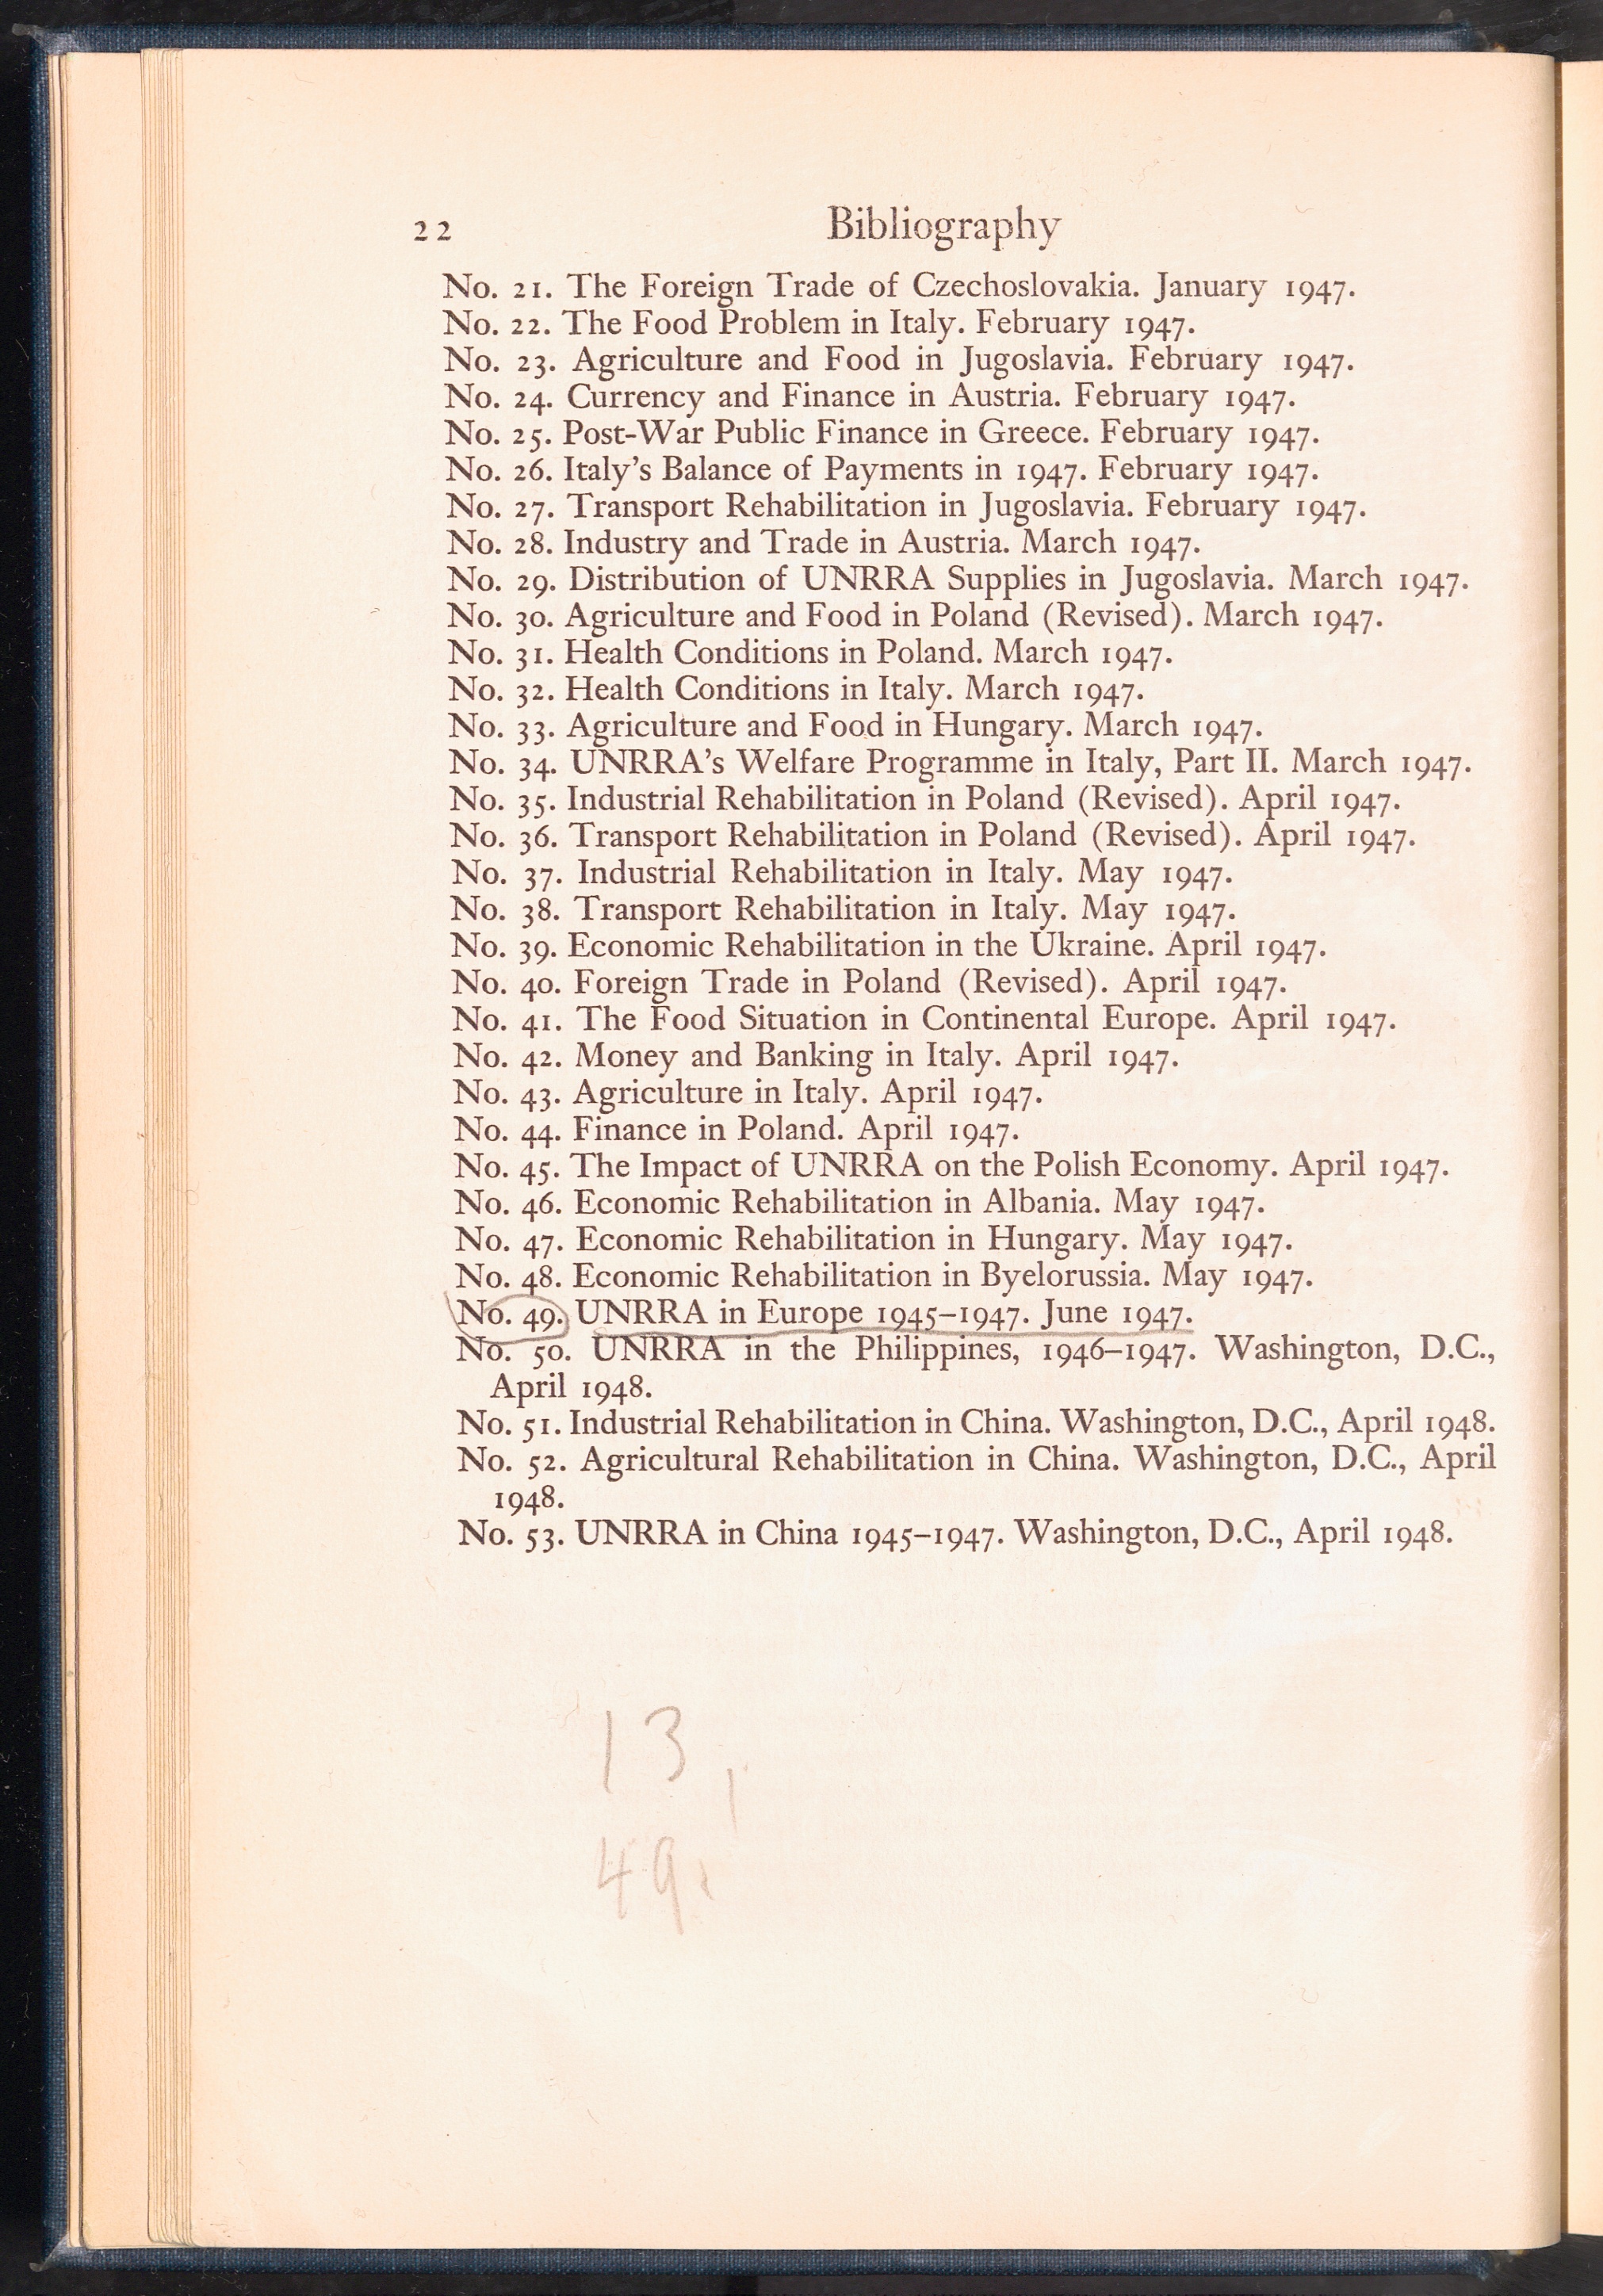 22 Bibliography
No. 21. The Foreign Trade of Czechoslovakia. January 1947.
No. 22. The Food Problem in Italy. February 1947.
No. 23. Agriculture and Food in Jugoslavia. February 1947.
No. 24. Currency and Finance in Austria. February 1947.
No. 25. Post-War Public Finance in Greece. February 1947.
No. 26. Italy's Balance of Payments in 1947. February 1947.
No. 27. Transport Rehabilitation in Jugoslavia. February 1947.
No. 28. Industry and Trade in Austria. March 1947.
No. 29. Distribution of UNRRA Supplies in Jugoslavia. March 1947.
No. 30. Agriculture and Food in Poland (Revised). March 1947.
No. 31. Health Conditions in Poland. March 1947.
No. 32. Health Conditions in Italy. March 1947.
No. 33. Agriculture and Food in Hungary. March 1947.
No. 34. UNRRA's Welfare Programme in Italy, Part II. March 1947.
No. 35. Industrial Rehabilitation in Poland (Revised). April 1947.
No. 36. Transport Rehabilitation in Poland (Revised). April 1947.
No. 37. Industrial Rehabilitation in Italy. May 1947.
No. 38. Transport Rehabilitation in Italy. May 1947.
No. 39. Economic Rehabilitation in the Ukraine. April 1947.
No. 40. Foreign Trade in Poland (Revised). April 1947.
No. 41. The Food Situation in Continental Europe. April 1947.
No. 42. Money and Banking in Italy. April 1947.
No. 43. Agriculture in Italy. April 1947.
No. 44. Finance in Poland. April 1947.
No. 45. The Impact of UNRRA on the Polish Economy. April 1947.
No. 46. Economic Rehabilitation in Albania. May 1947.
No. 47. Economic Rehabilitation in Hungary. May 1947.
No. 48. Economic Rehabilitation in Byelorussia. May 1947.
No. 49. UNRRA in Europe 1945–1947. June 1947.
No. 50. UNRRA in the Philippines, 1946–1947. Washington, D.C.,
April 1948.
No. 51. Industrial Rehabilitation in China. Washington, D.C., April 1948.
No. 52. Agricultural Rehabilitation in China. Washington, D.C., April
1948.
No. 53. UNRRA in China 1945–1947. Washington, D.C., April 1948.
13,
49.